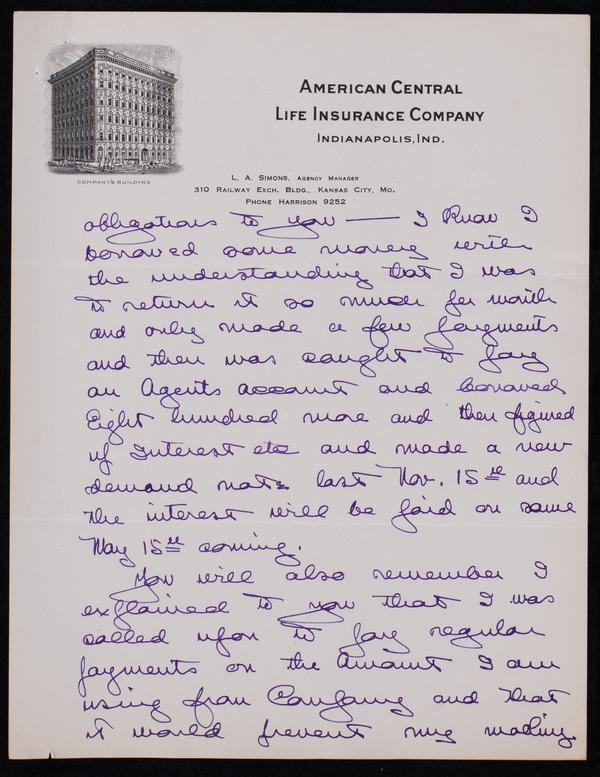 AMERICAN CENTRAL
LIFE INSURANCE COMPANY
INDIANAPOLIS, IND.
COMPANY'S BUILDING
L. A. SIMONS, AGENCY MANAGER
310 RAILWAY EXCH. BLDG., KANSAS CITY, MO.
PHONE HARRISON 9252
obligations to you — I Know I
borrowed some money with
the understanding that I was
to return it so much per month
and only made a few payments
and then was caught to pay
an Agents account and borrowed
Eight hundred more and then figured
up Interest etc and made a new
demand note last Nov. 15th and
the interest will be paid on same
May 15th coming.
You will also remember I
explained to you that I was
called upon to pay regular
payments on the Amount I am
using from Company and that
it would prevent my making